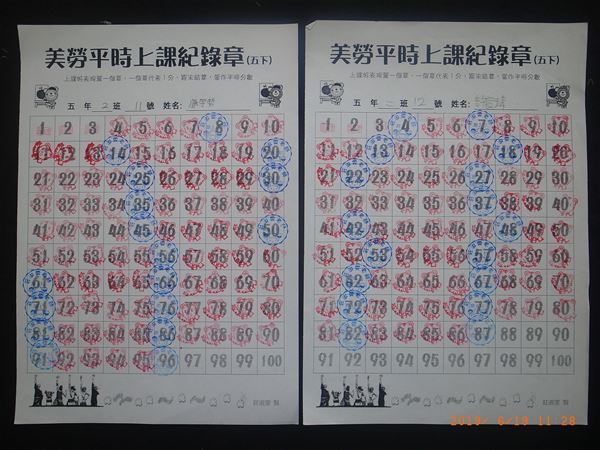 美勞平時上課紀錄章(五下)
上課好表現蓋一個章，一個章代表1分，期末結算，當作平時分數
五 年 2 班 11 號 姓名:
1 2 3 4 5 6 7 8 9 10
11 12 13 14 15 16 17 18 19 20
21 22 23 24 25 26 27 28 29 30
31 32 33 34 35 36 37 38 39 40
41 42 43 44 45 46 47 48 49 50
51 52 53 54 55 56 57 58 59 60
61 62 63 64 65 66 67 68 69 70
71 72 73 74 75 76 77 78 79 80
81 82 83 84 85 86 87 88 89 90
91 92 93 94 95 96 97 98 99 100
美勞平時上課紀錄章(五下)
上課好表現蓋一個章，一個章代表1分，期末結算，當作平時分數
五 年 二 班 12 號 姓名:
1 2 3 4 5 6 7 8 9 10
11 12 13 14 15 16 17 18 19 20
21 22 23 24 25 26 27 28 29 30
31 32 33 34 35 36 37 38 39 40
41 42 43 44 45 46 47 48 49 50
51 52 53 54 55 56 57 58 59 60
61 62 63 64 65 66 67 68 69 70
71 72 73 74 75 76 77 78 79 80
81 82 83 84 85 86 87 88 89 90
91 92 93 94 95 96 97 98 99 100
2019/ 6/19 11:28